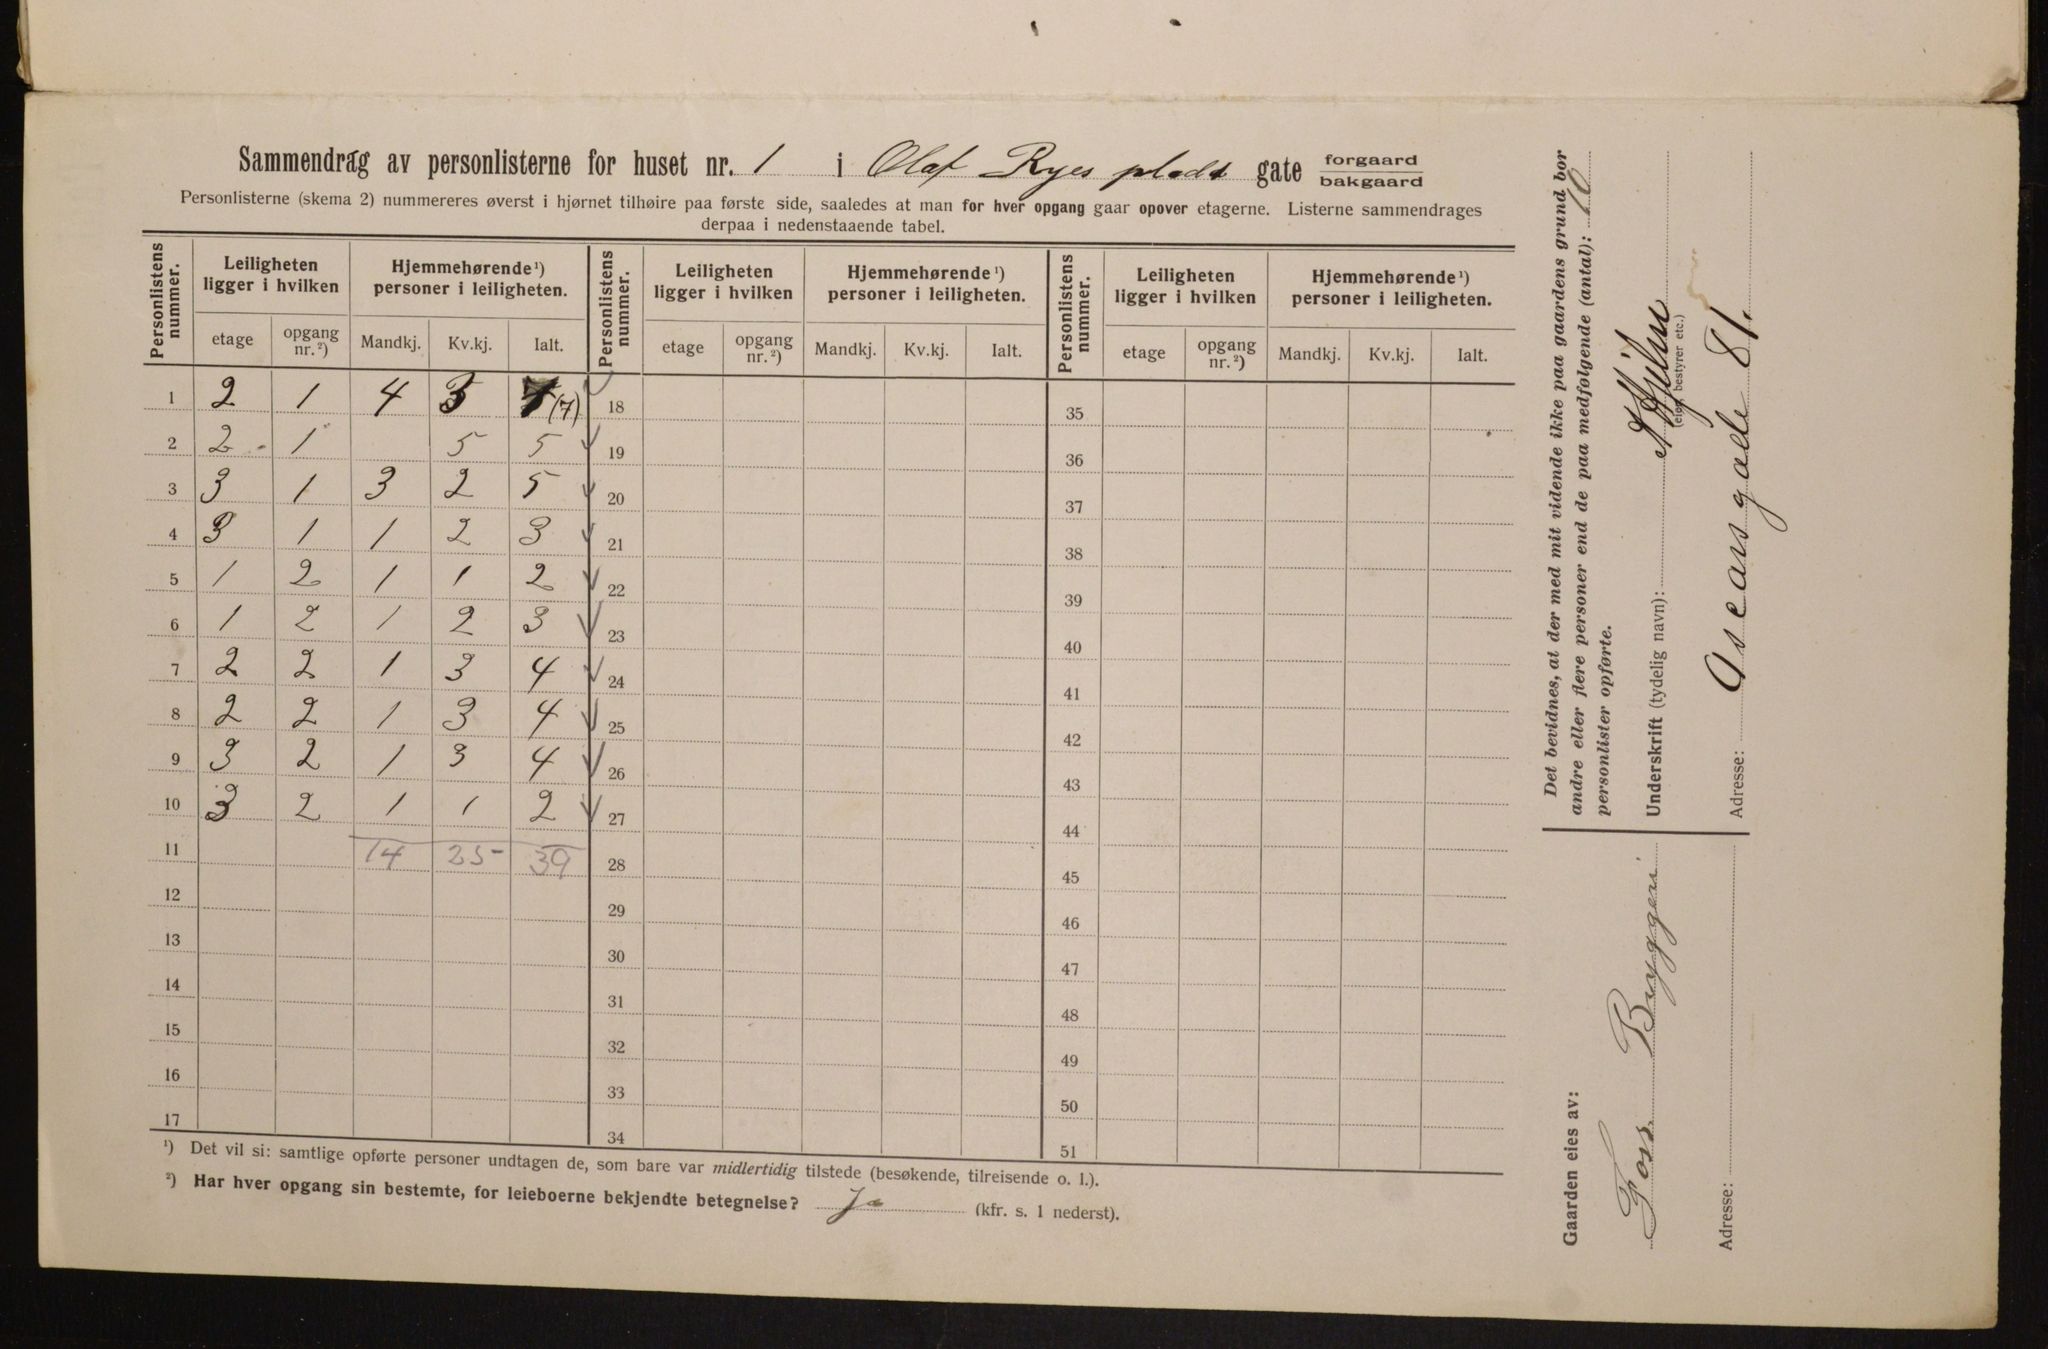 Sammendrag av personlisterne for huset nr. 1 i Olaf Ryes plads gate forgaard bakgaard
Personlisterne (skema 2) nummereres øverst i hjørnet tilhøire paa første side, saaledes at man for hver opgang gaar opover etagerne. Listerne sammendrages
derpaa i nedenstaaende tabel.
Personlistens nummer. Leiligheten ligger i hvilken Hjemmehørende ¹) personer i leiligheten. Personlistens nummer. Leiligheten ligger i hvilken Hjemmehørende ¹) personer i leiligheten. Personlistens nummer. Leiligheten ligger i hvilken Hjemmehørende ¹) personer i leiligheten.
etage opgang nr. ²) Mandkj. Kv.kj. Ialt. etage opgang nr. ²) Mandkj. Kv.kj. Ialt. etage opgang nr. ²) Mandkj. Kv.kj. Ialt.
1 2 1 4 3 7 (7) 18 35
2 2 1 5 5 19 36
3 3 1 3 2 5 20 37
4 3 1 1 2 3 21 38
5 1 2 1 1 2 22 39
6 1 2 1 2 3 23 40
7 2 2 1 3 4 24 41
8 2 2 1 3 4 25 42
9 3 2 1 3 4 26 43
10 3 2 1 1 2 27 44
11 14 25 39 28 45
12 29 46
13 30 47
14 31 48
15 32 49
16 33 50
17 34 51
¹) Det vil si: samtlige opførte personer undtagen de, som bare var midlertidig tilstede (besøkende, tilreisende o. l.).
²) Har hver opgang sin bestemte, for leieboerne bekjendte betegnelse? Ja (kfr. s. 1 nederst).
Det bevidnes, at der med mit vidende ikke paa gaardens grund bor
andre eller flere personer end de paa medfølgende (antal): 10
personlister opførte.
Underskrift (tydelig navn): Hjelm
(eier, bestyrer etc.)
Adresse: Oscarsgade 81.
Gaarden eies av:
Foss Bryggeri
Adresse: